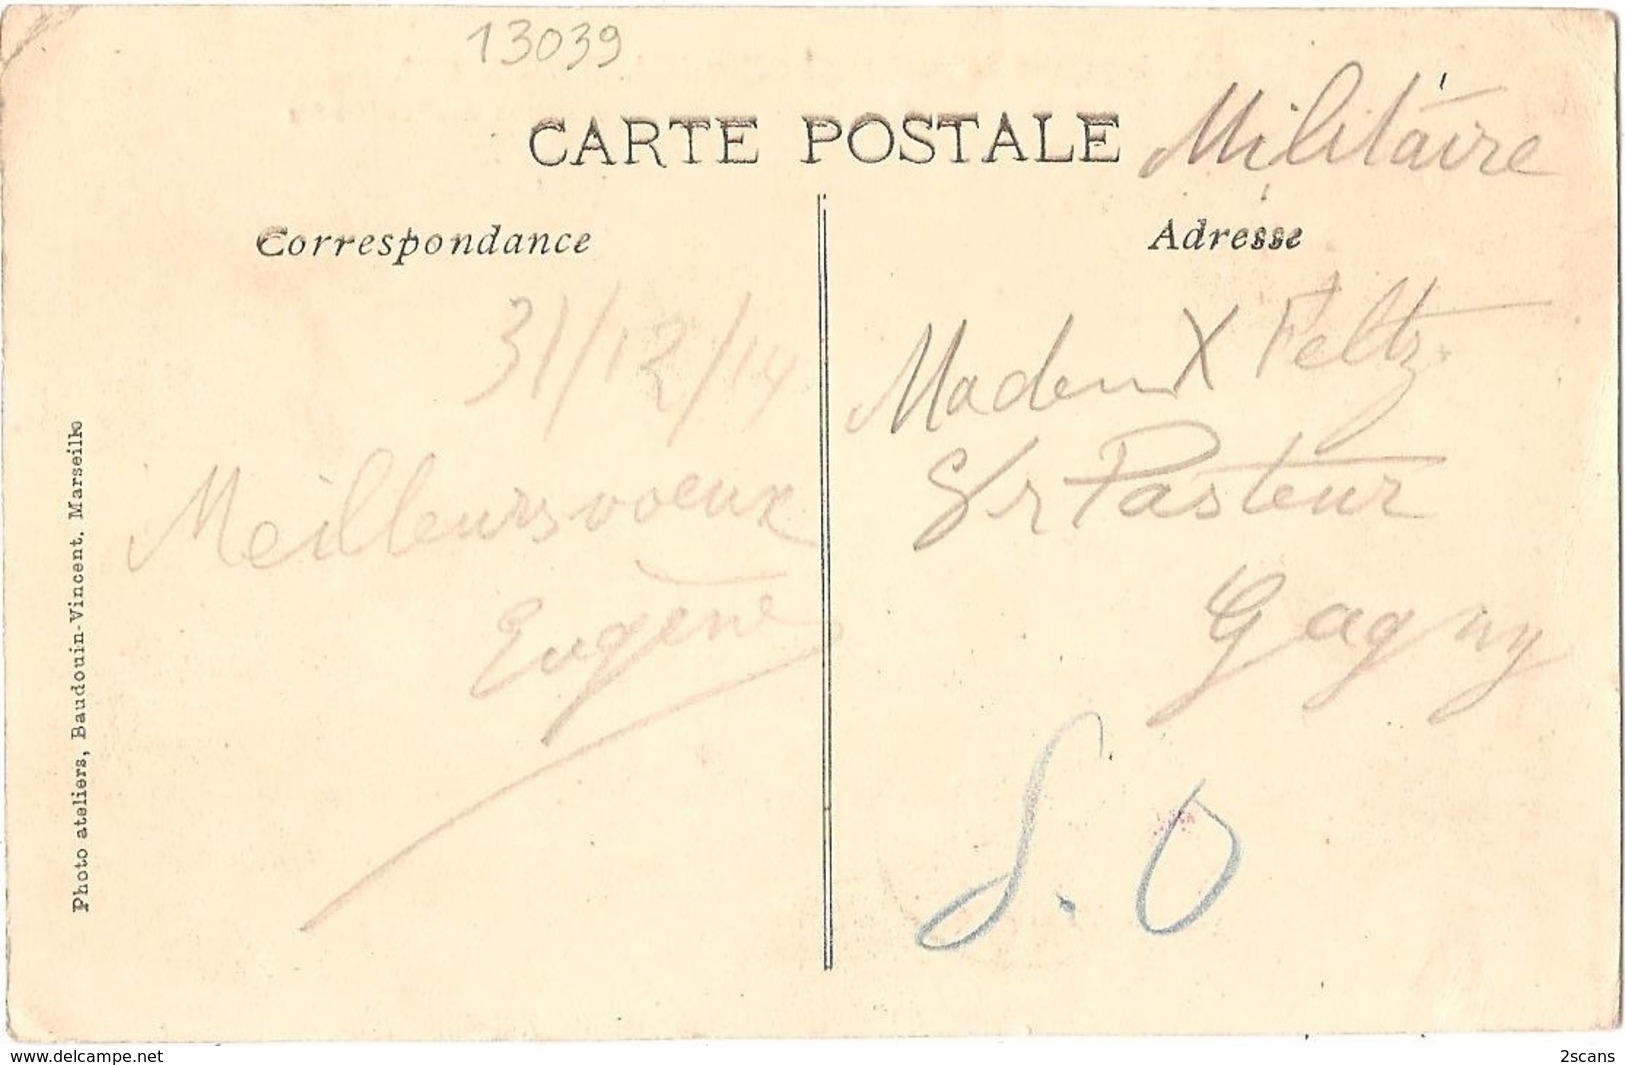 13039
CARTE POSTALE Militaire
Correspondance
Adresse
31/12/14
Meilleurs voeux
Eugène
X Feltz
Pasteur
Gagny
S. O
Photo ateliers, Baudouin-Vincent. Marseille
www.delcampe.net
2scans